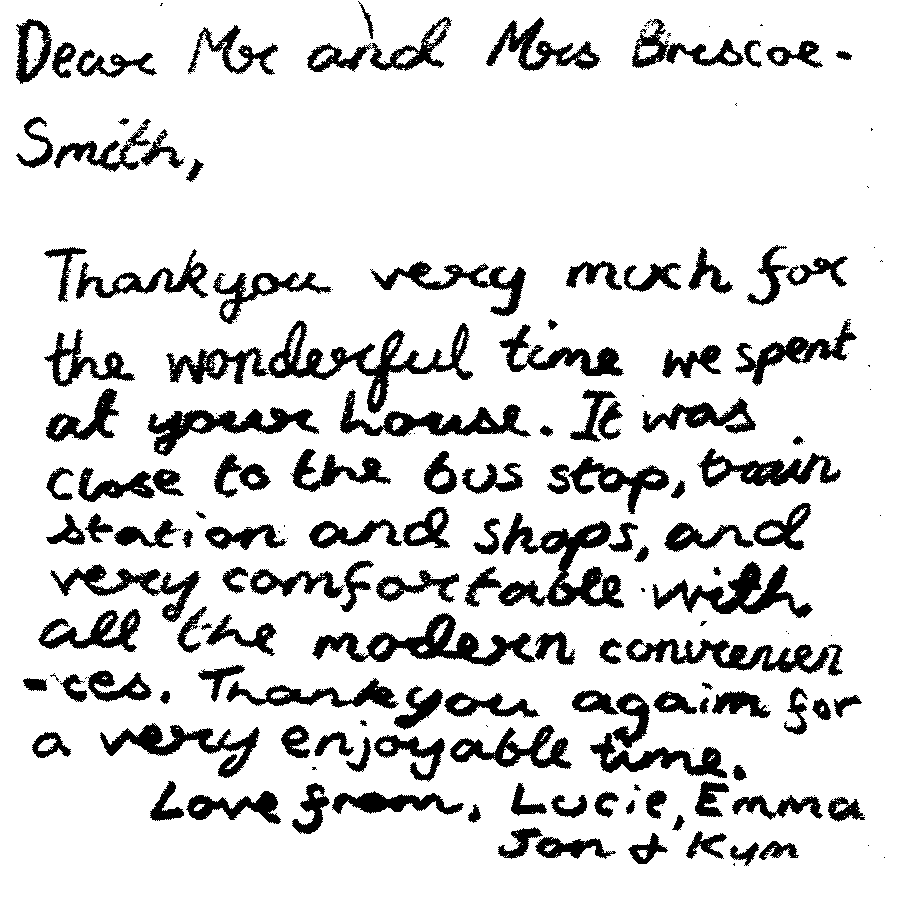 Dear Mr and Mrs Brescoe-
Smith,
Thankyou very much for
the wonderful time we spent
at your house. It was
close to the bus stop, train
station and shops, and
very comfortable with
all the modern convenien
-ces. Thankyou again for
a very enjoyable time.
Love from, Lucie, Emma
Jon & Kym